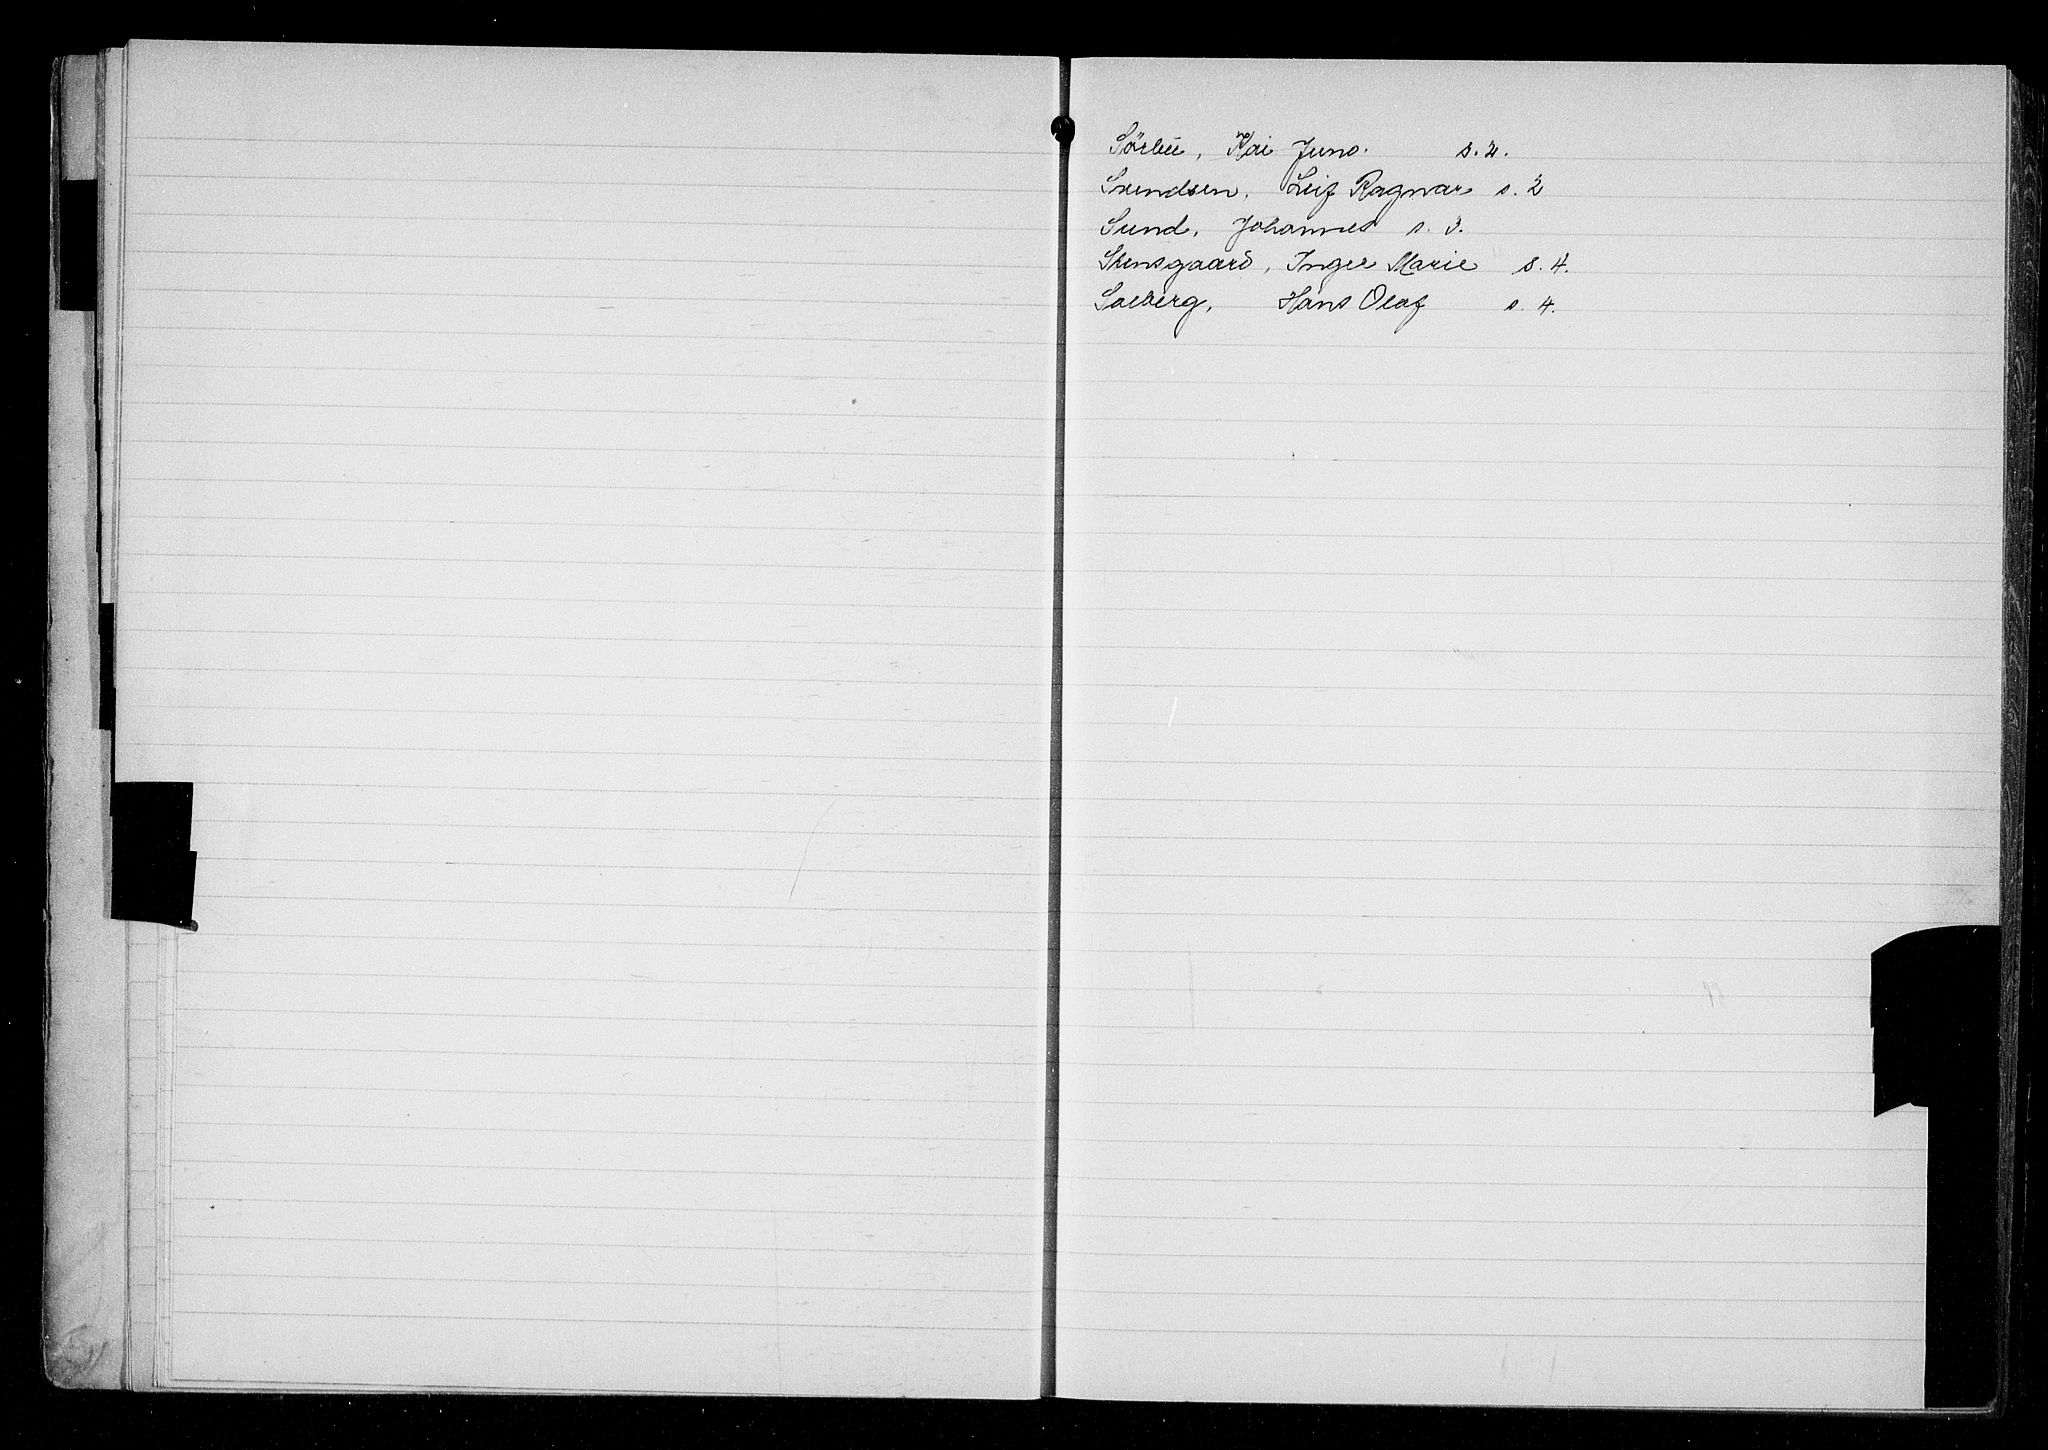 Sörlie, Kai Juno. s. 2.
Svendsen, Leif Ragnar s. 2
Sund, Johannes s. 3.
Stensgaard, Inger Marie s. 4.
Solberg, Hans Olaf s. 4.